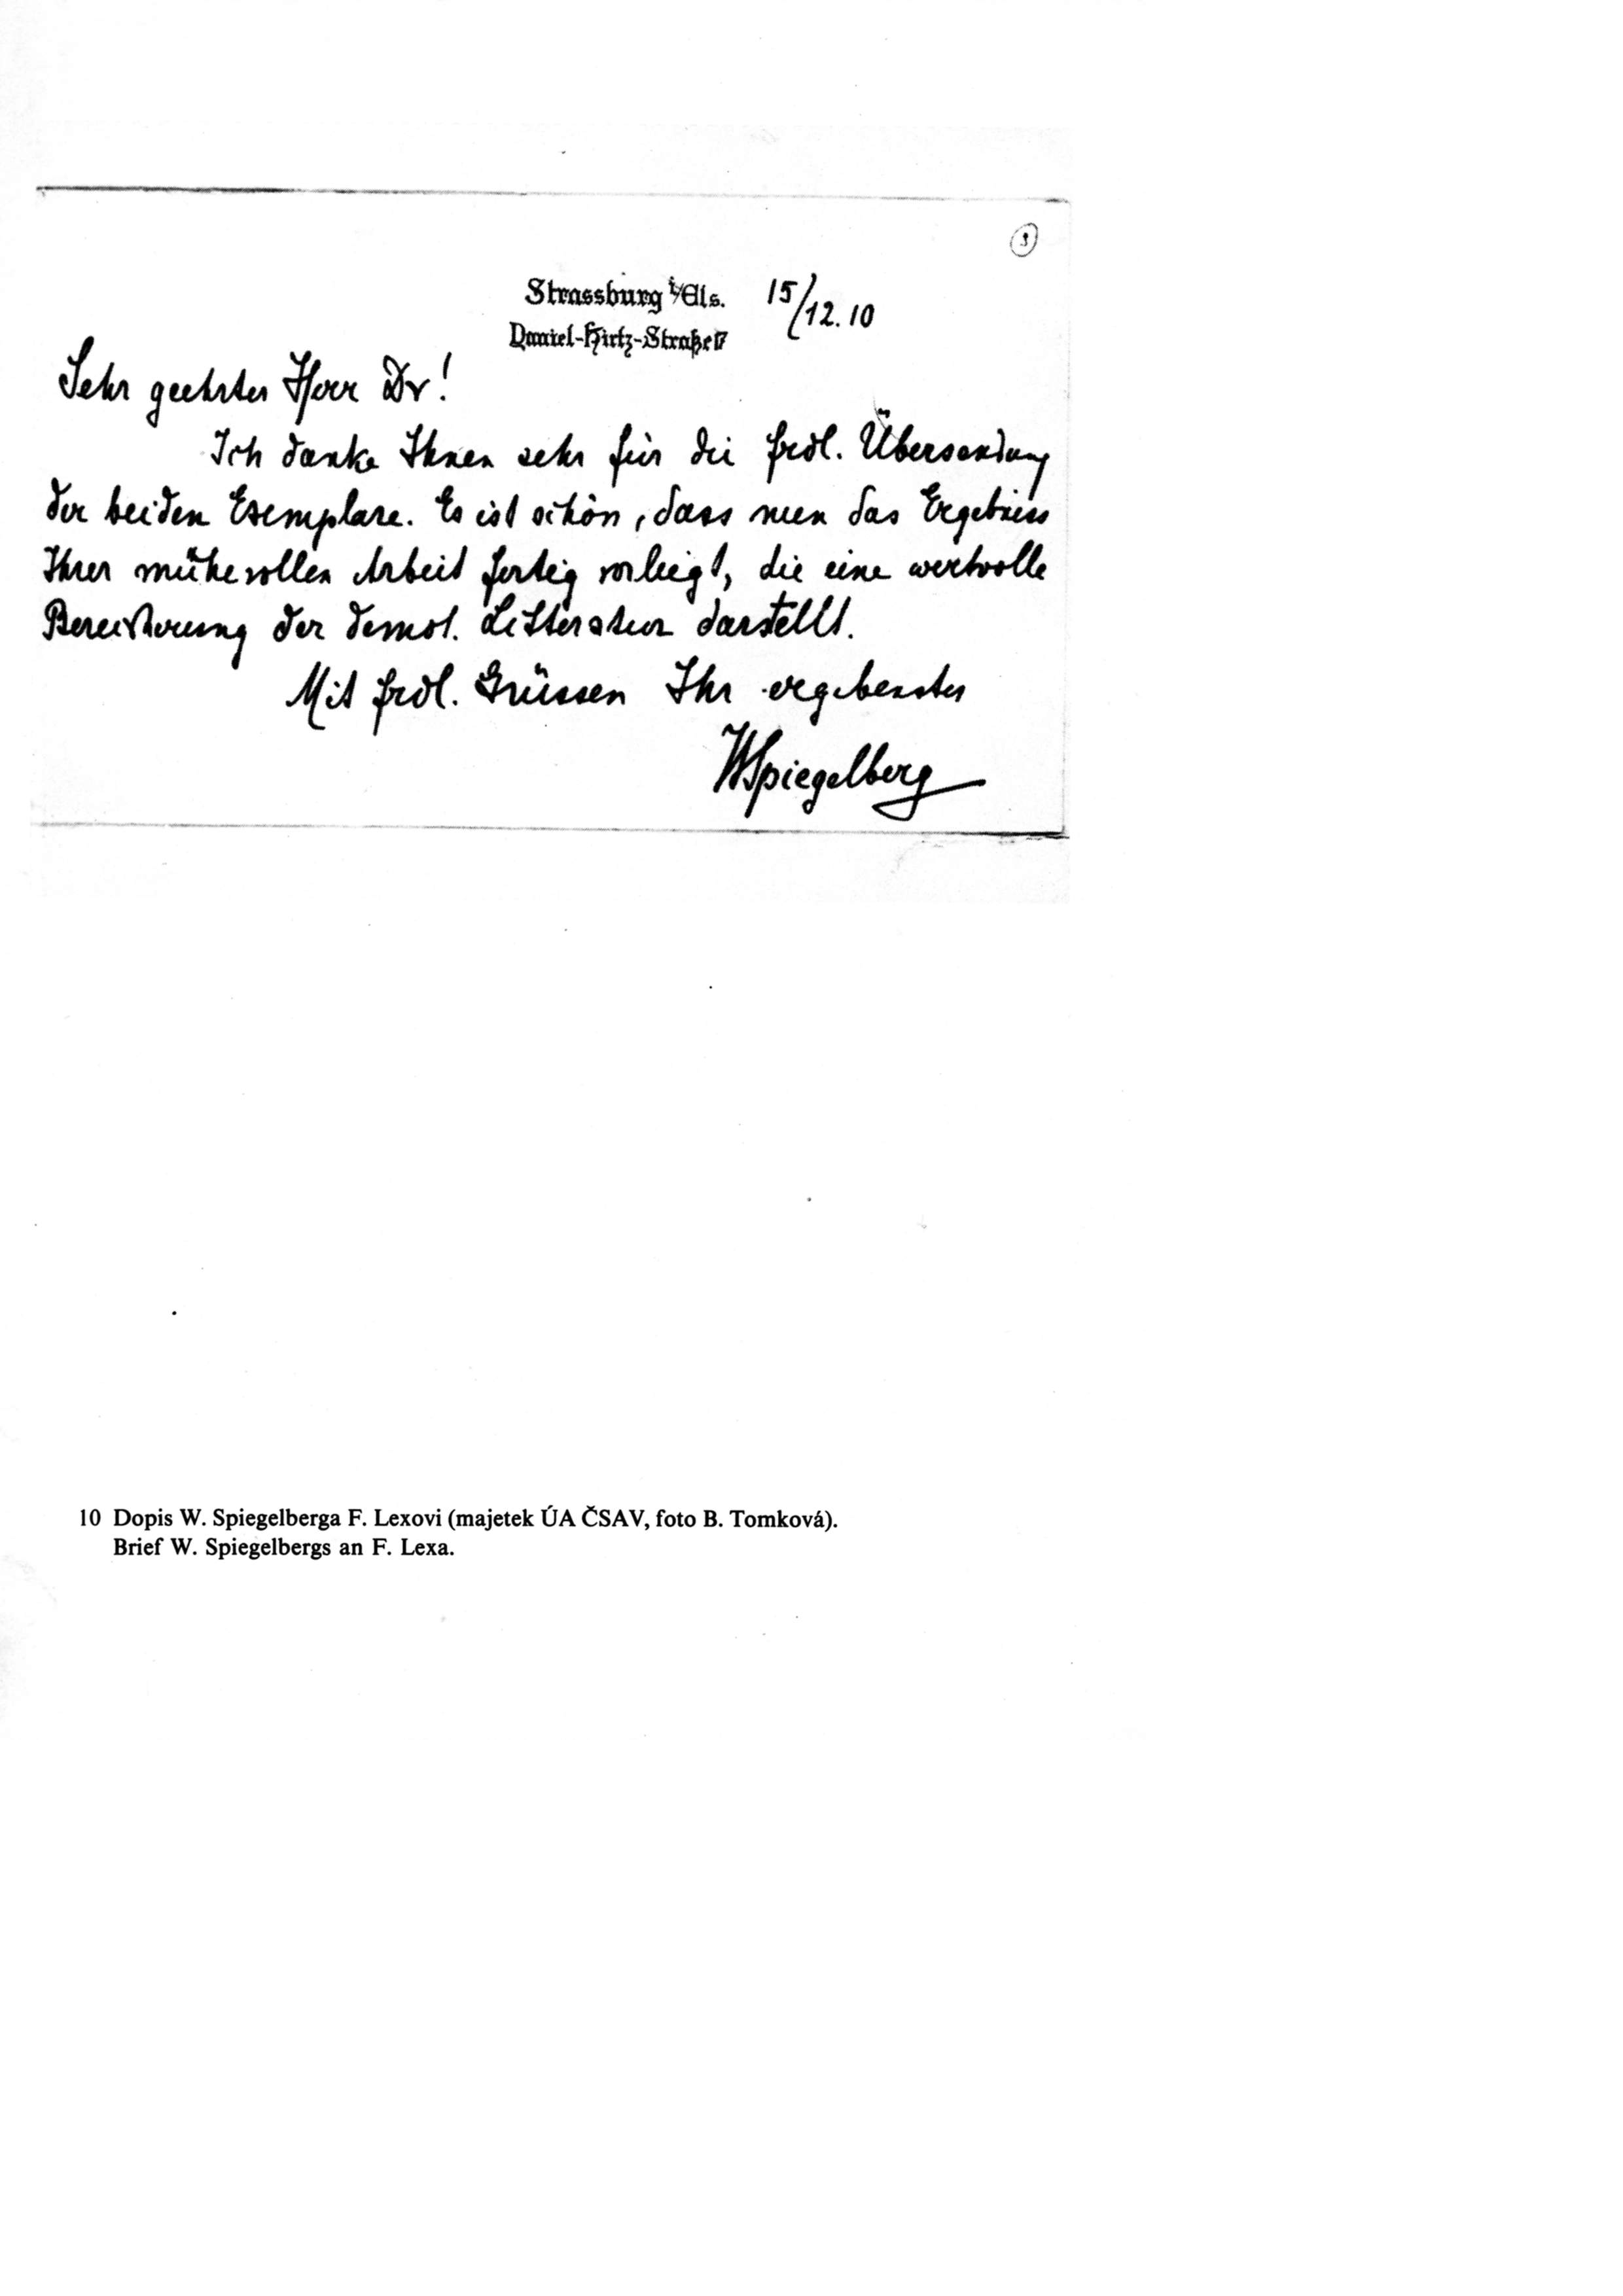 3
Strassburg i/Els. 15/12.10
Daniel-Hirtz-Straße 17
Sehr geehrter Herr Dr!
Ich danke Ihnen sehr für die frdl. Übersendung
der beiden Exemplare. Es ist schön, dass nun das Ergebniss
Ihrer mühevollen Arbeit fertig vorliegt, die eine wertvolle
Bereicherung der demot. Litteratur darstellt.
Mit frdl. Grüssen Ihr ergebenster
WSpiegelberg
10 Dopis W. Spiegelberga F. Lexovi (majetek ÚA ČSAV, foto B. Tomková).
Brief W. Spiegelbergs an F. Lexa.